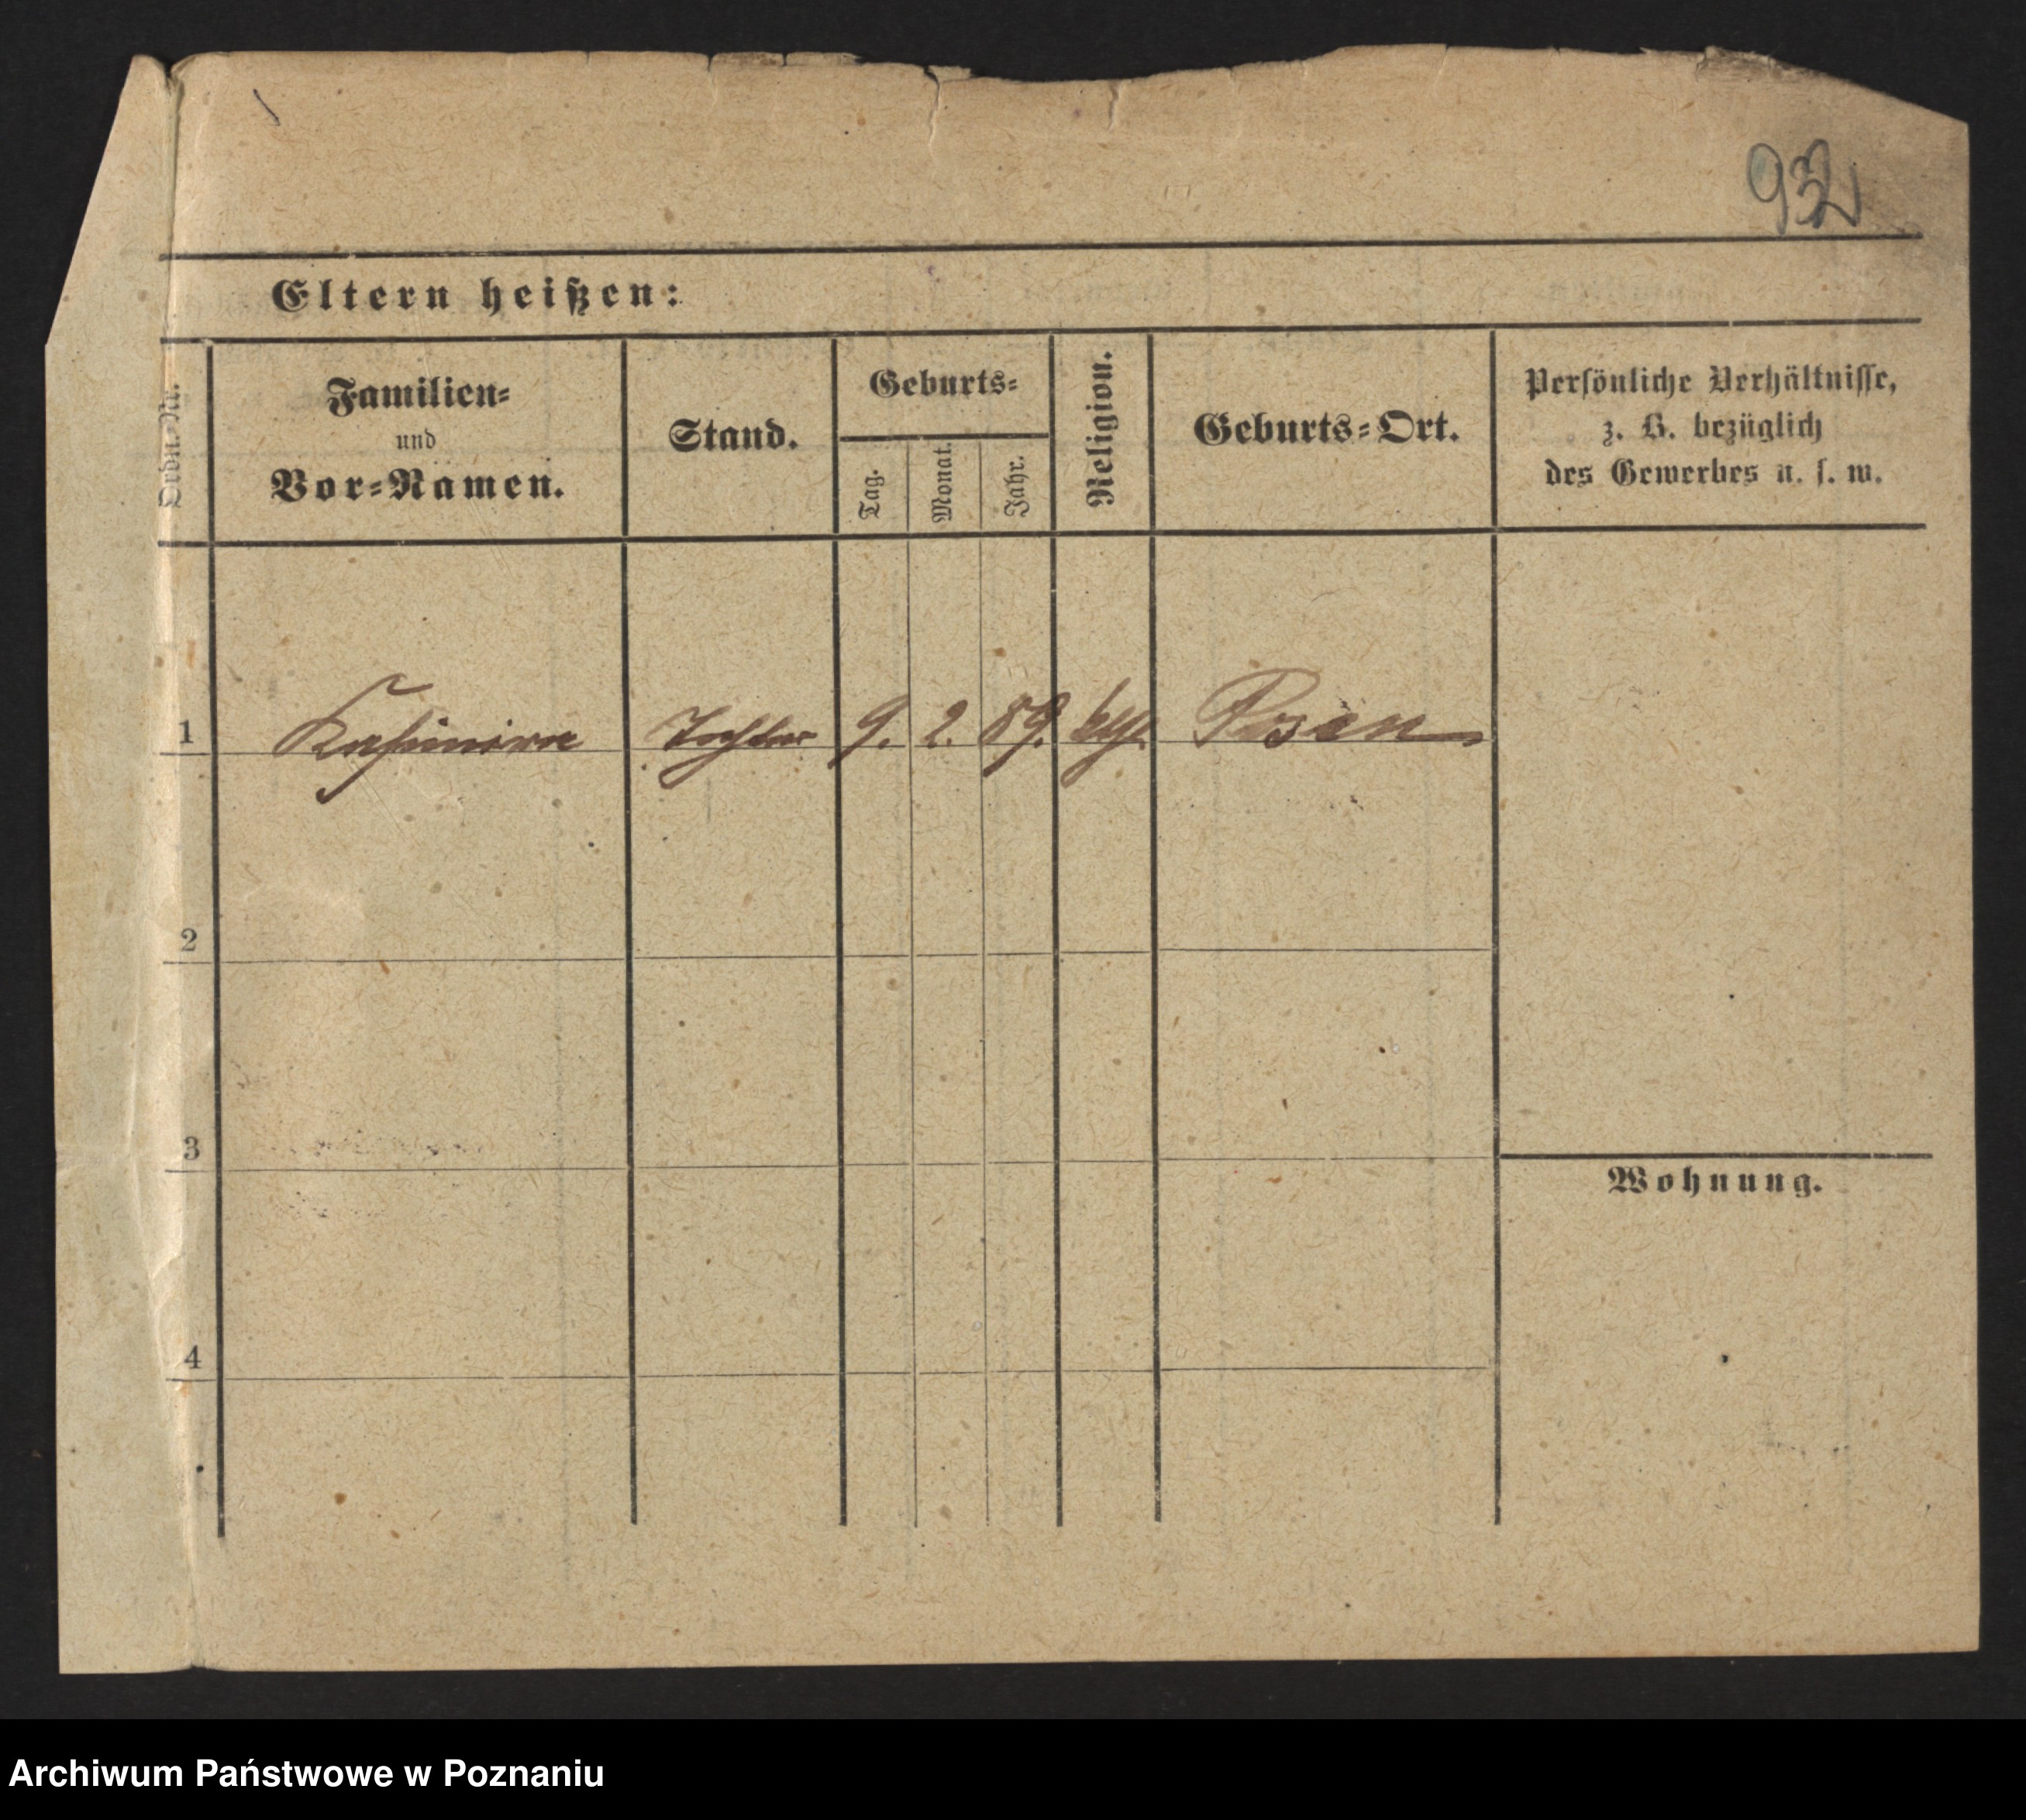 932
Eltern heißen:
Ordn.-Nr.
Familien-
und
Vor-Namen.
Stand.
Geburts-
Tag.
Monat.
Jahr.
Religion.
Geburts-Ort.
Persönliche Verhältnisse,
z. B. bezüglich
des Gewerbes u. s. w.
1 Kasimira Tochter 9. 2. 89. kath. Posen
2
3
Wohnung.
4
Archiwum Państwowe w Poznaniu